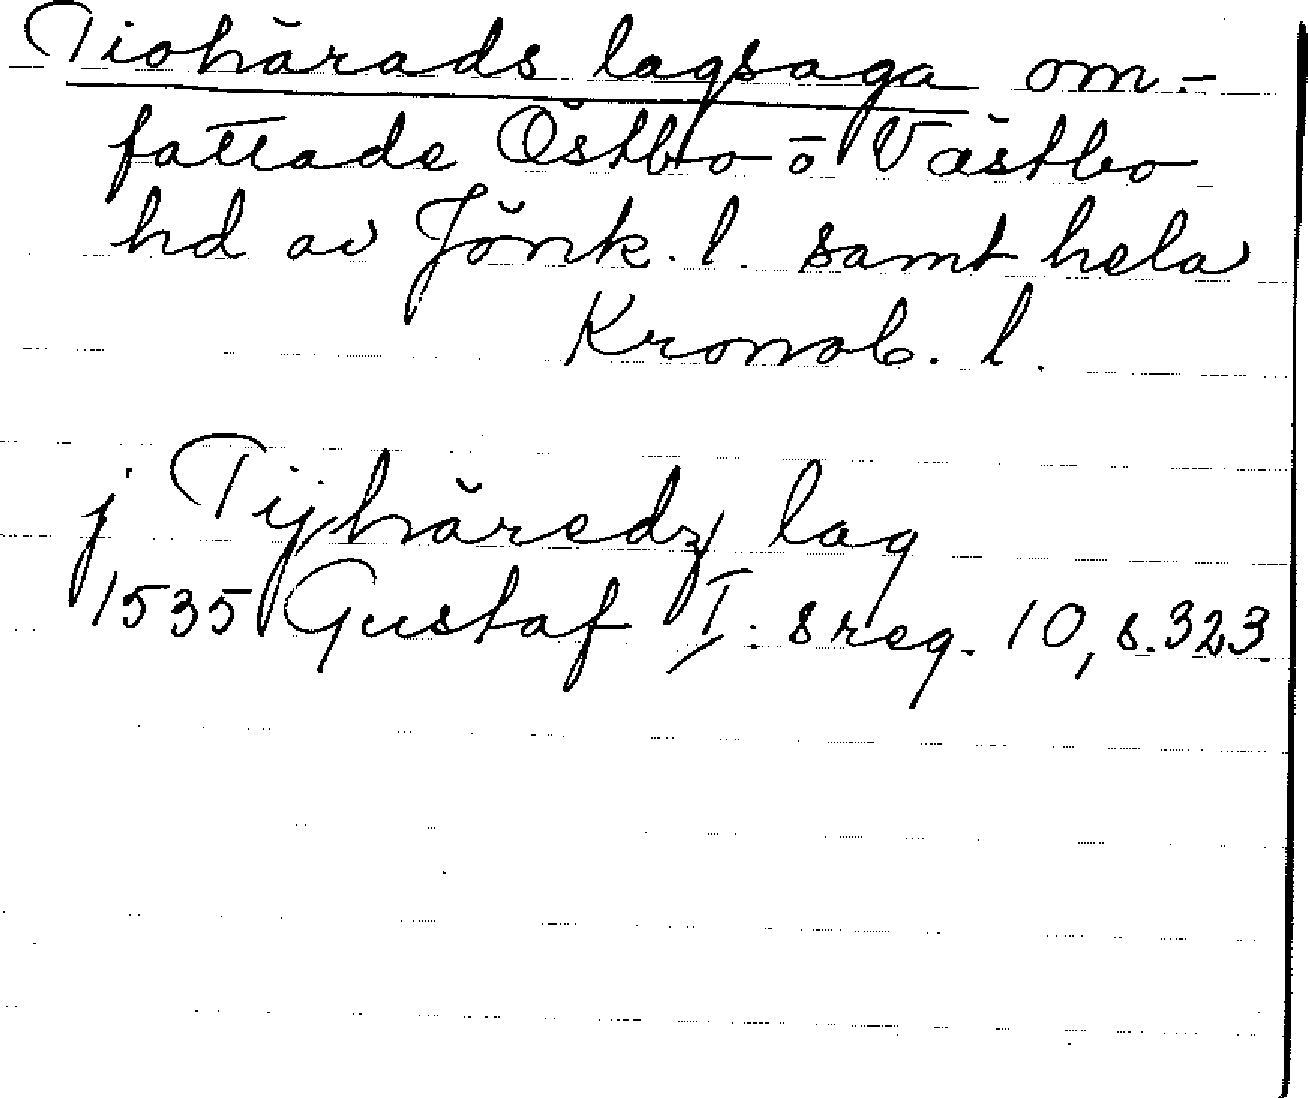 Tiohärads lagsaga om-
fattade Östbo o Västbo
hd av Jönk. l. samt hela
Kronob. l.
j Tijhäredz lag
1535 Gustaf I:s reg. 10, s. 323